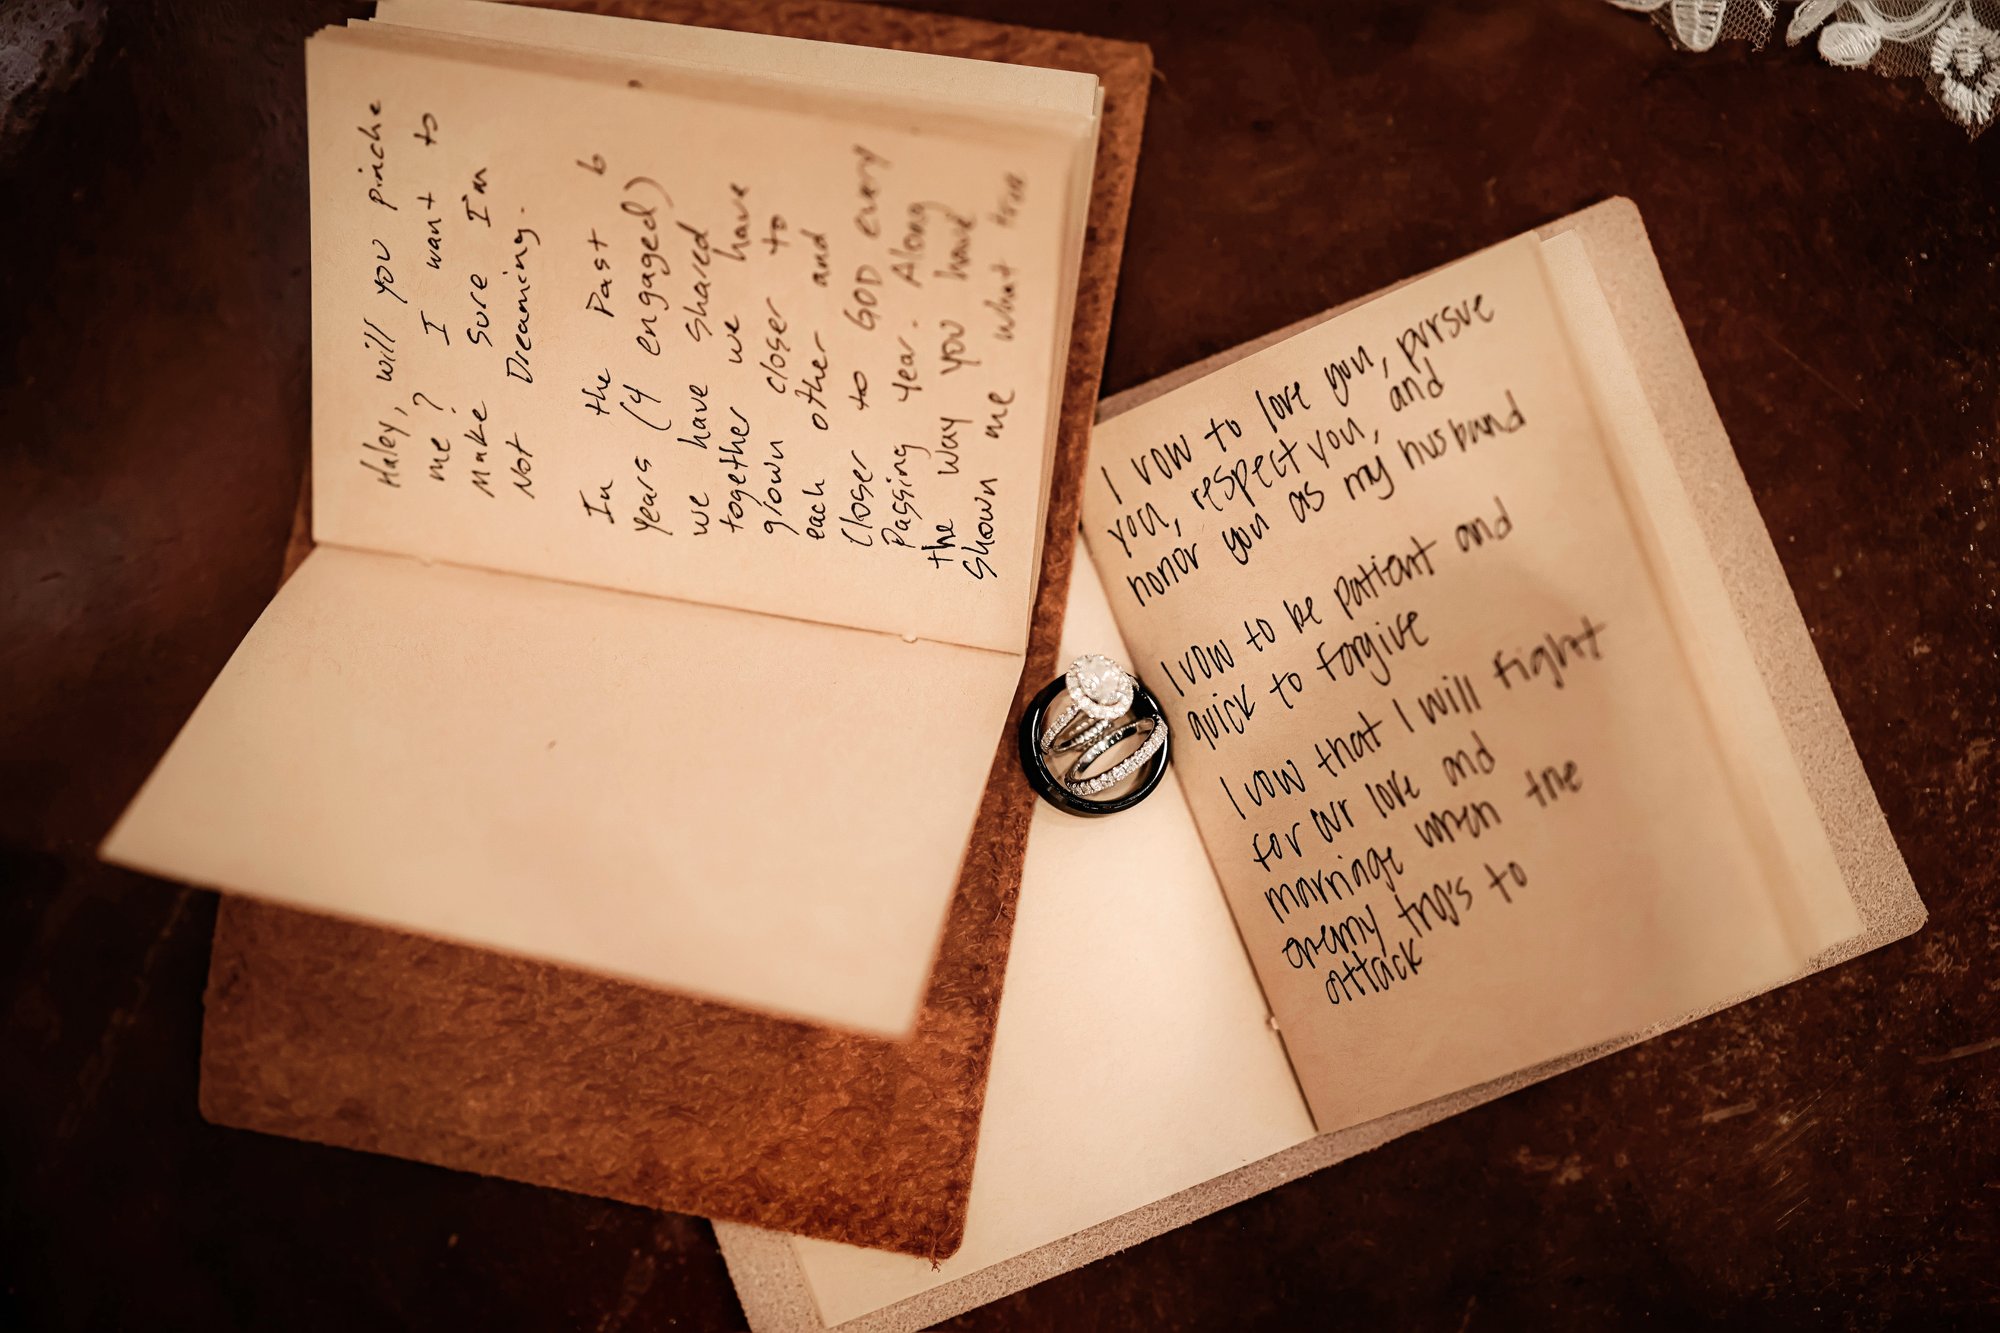 Haley, will you pinche
me? I want to
make sure I'm
Not Dreaming.
In the Past 6
years (4 engaged)
we have shared
together we have
grown closer to
each other and
closer to GOD every
Passing year. Along
the way you have
shown me what true
I vow to love you, pursue
you, respect you, and
honor you as my husband
I vow to be patient and
quick to forgive
I vow that I will fight
for our love and
marriage when the
enemy try's to
attack